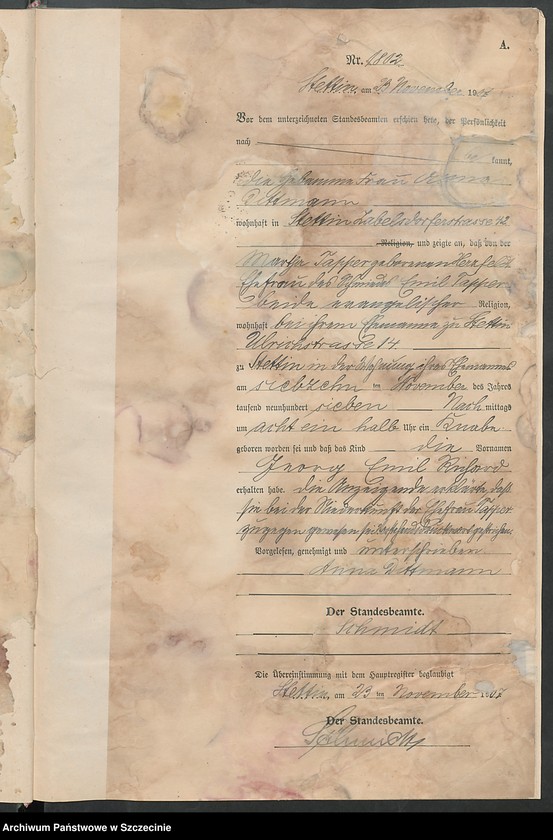 A.
Nr. 1802
Stettin, am 23 November 19
Vor dem unterzeichneten Standesbeamten erschien heute, der Persönlichkeit
nach kannt,
die Hebamme Frau Anna
Dittmann
wohnhaft in Stettin Zabelsdorferstrasse 42
Religion, und zeigte an, daß von der
Martha Tapper geborenen
Ehefrau des Emil Tapper
beide evangelischer Religion,
wohnhaft bei ihrem Ehemanne zu Stettin
Ulrichstrasse 14
zu Stettin in der Wohnung ihres Ehemannes
am siebzehn ten November des Jahres
tausend neunhundert sieben Nach mittags
um acht ein halb Uhr ein Knabe
geboren worden sei und daß das Kind die Vornamen
Georg Emil Richard
erhalten habe. Die Anzeigende erklärte, daß
sie bei der Niederkunft der Ehefrau Tapper
zugegen gewesen sei. Vorstehend Druckwort gestrichen.
Vorgelesen, genehmigt und unterschrieben
Anna Dittmann
Der Standesbeamte.
Schmidt
Die Übereinstimmung mit dem Hauptregister beglaubigt
Stettin, am 23 ten November 1907
Der Standesbeamte.
Archiwum Państwowe w Szczecinie